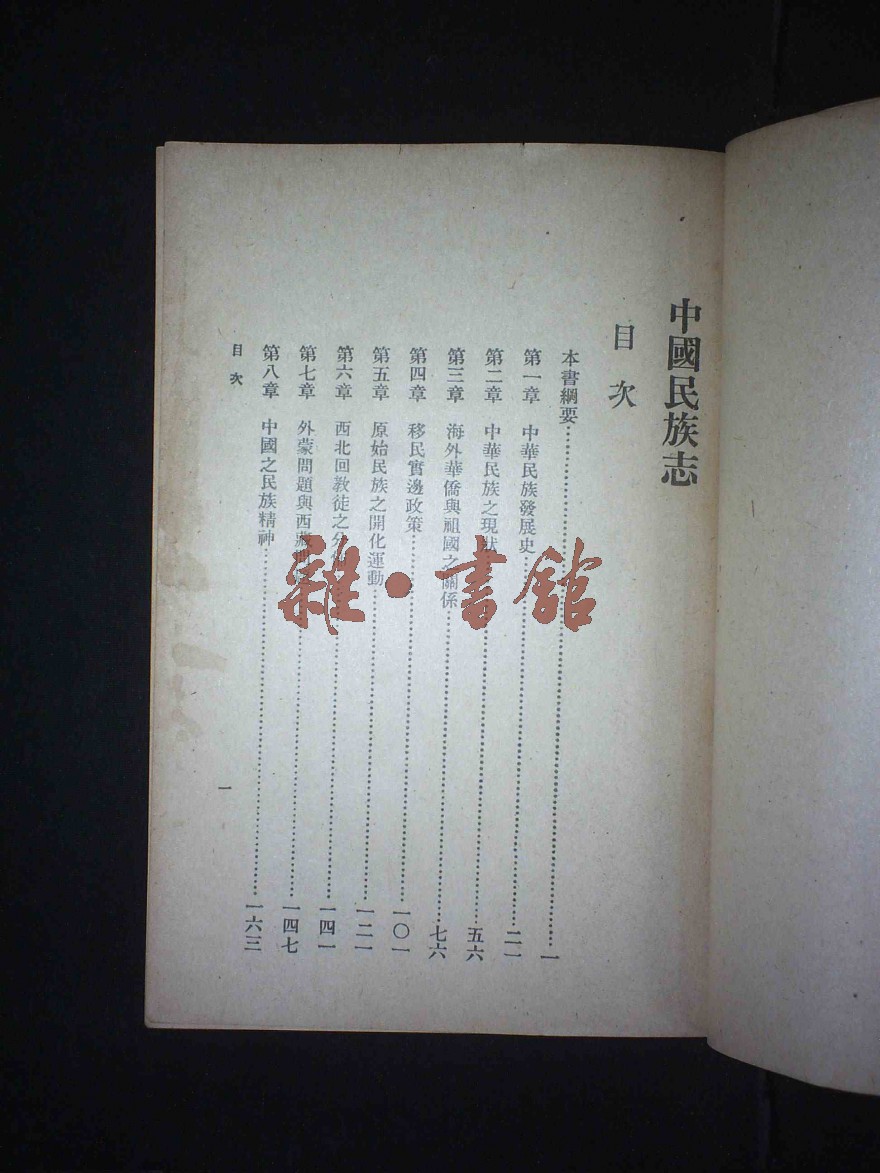 中國民族志
目次
本書綱要 一
第一章 中華民族發展史 二一
第二章 中華民族之現狀 五六
第三章 海外華僑與祖國之關係 七六
第四章 移民實邊政策 一〇一
第五章 原始民族之開化運動 一二一
第六章 西北回教徒之分 一四一
第七章 外蒙問題與西藏 一四七
第八章 中國之民族精神 一六三
目次
一
雜·書館